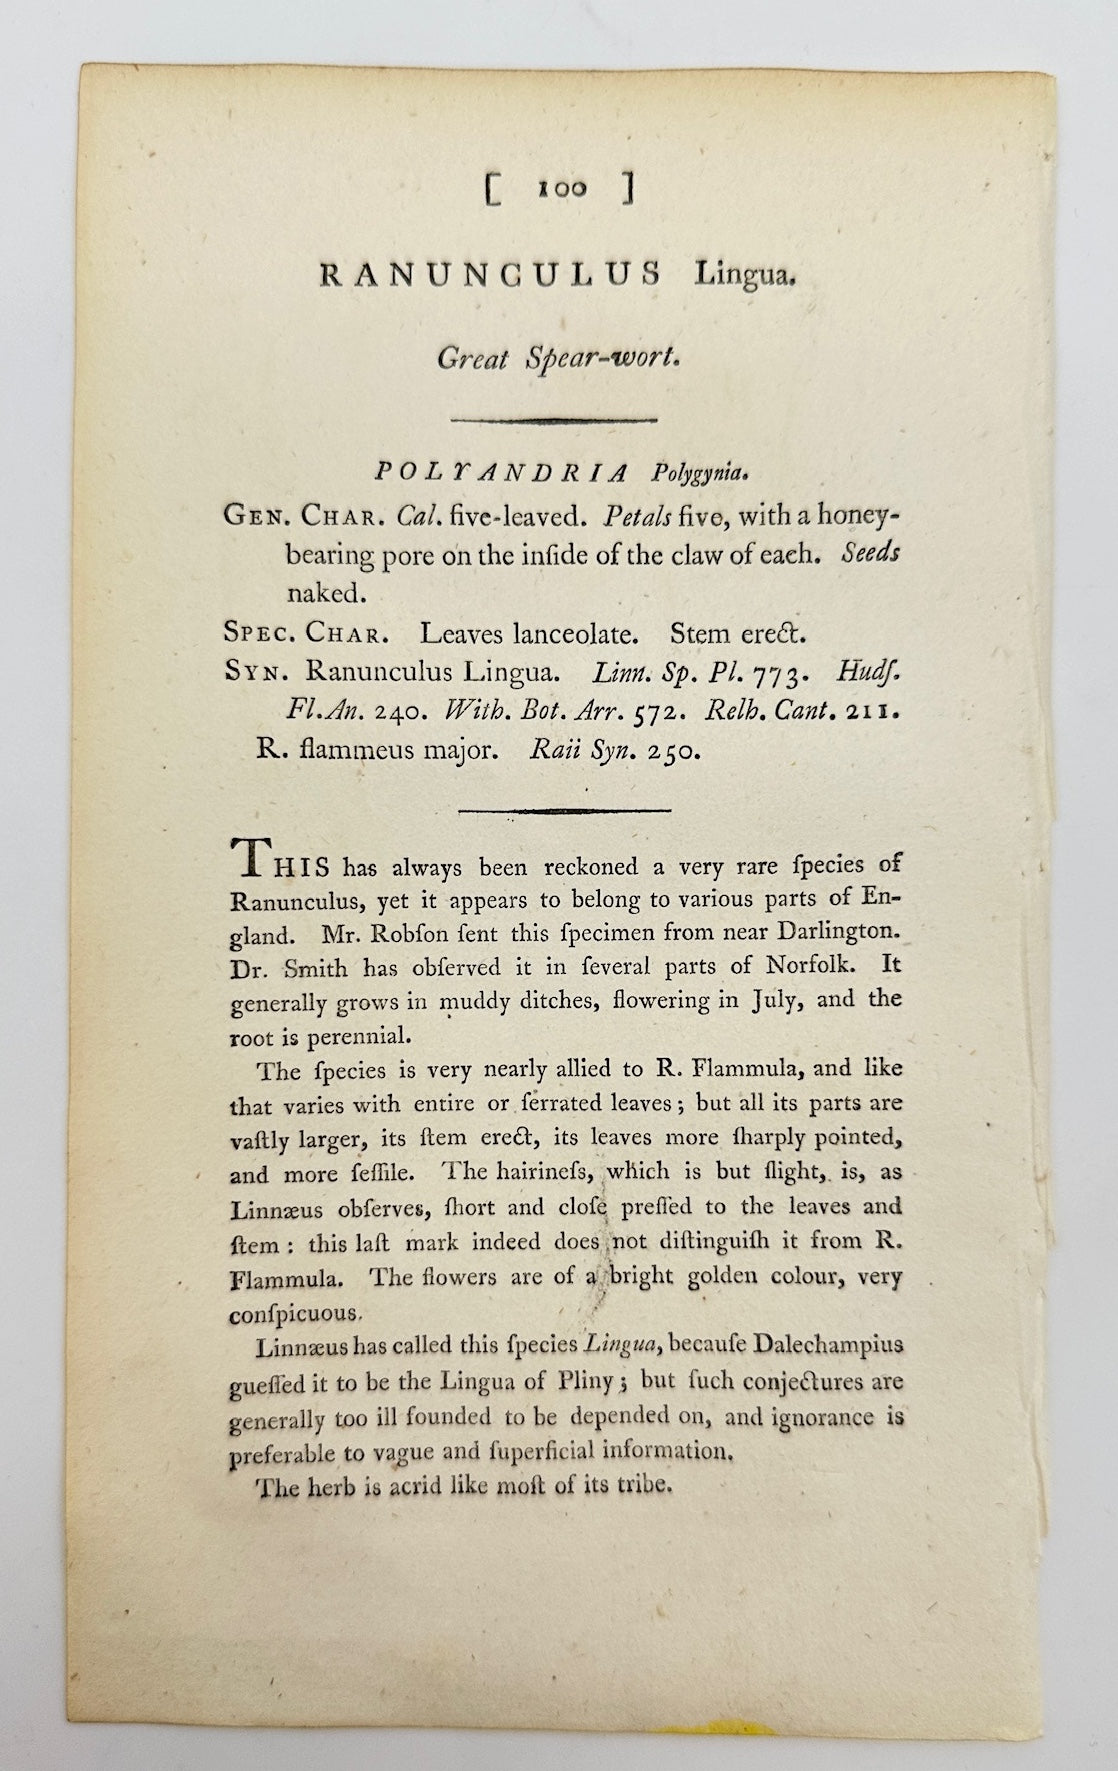 [ 100 ]
RANUNCULUS Lingua.
Great Spear-wort.
POLYANDRIA Polygynia.
GEN. CHAR. Cal. five-leaved. Petals five, with a honey-
bearing pore on the inſide of the claw of each. Seeds
naked.
SPEC. CHAR. Leaves lanceolate. Stem erect.
SYN. Ranunculus Lingua. Linn. Sp. Pl. 773. Hudſ.
Fl. An. 240. With. Bot. Arr. 572. Relh. Cant. 211.
R. flammeus major. Raii Syn. 250.
THIS has always been reckoned a very rare ſpecies of
Ranunculus, yet it appears to belong to various parts of En-
gland. Mr. Robſon ſent this ſpecimen from near Darlington.
Dr. Smith has obſerved it in ſeveral parts of Norfolk. It
generally grows in muddy ditches, flowering in July, and the
root is perennial.
The ſpecies is very nearly allied to R. Flammula, and like
that varies with entire or ſerrated leaves; but all its parts are
vaſtly larger, its ſtem erect, its leaves more ſharply pointed,
and more ſeſſile. The hairineſs, which is but ſlight, is, as
Linnæus obſerves, ſhort and cloſe preſſed to the leaves and
ſtem: this laſt mark indeed does not diſtinguiſh it from R.
Flammula. The flowers are of a bright golden colour, very
conſpicuous.
Linnæus has called this ſpecies Lingua, becauſe Dalechampius
gueſſed it to be the Lingua of Pliny; but ſuch conjectures are
generally too ill founded to be depended on, and ignorance is
preferable to vague and ſuperficial information.
The herb is acrid like moſt of its tribe.